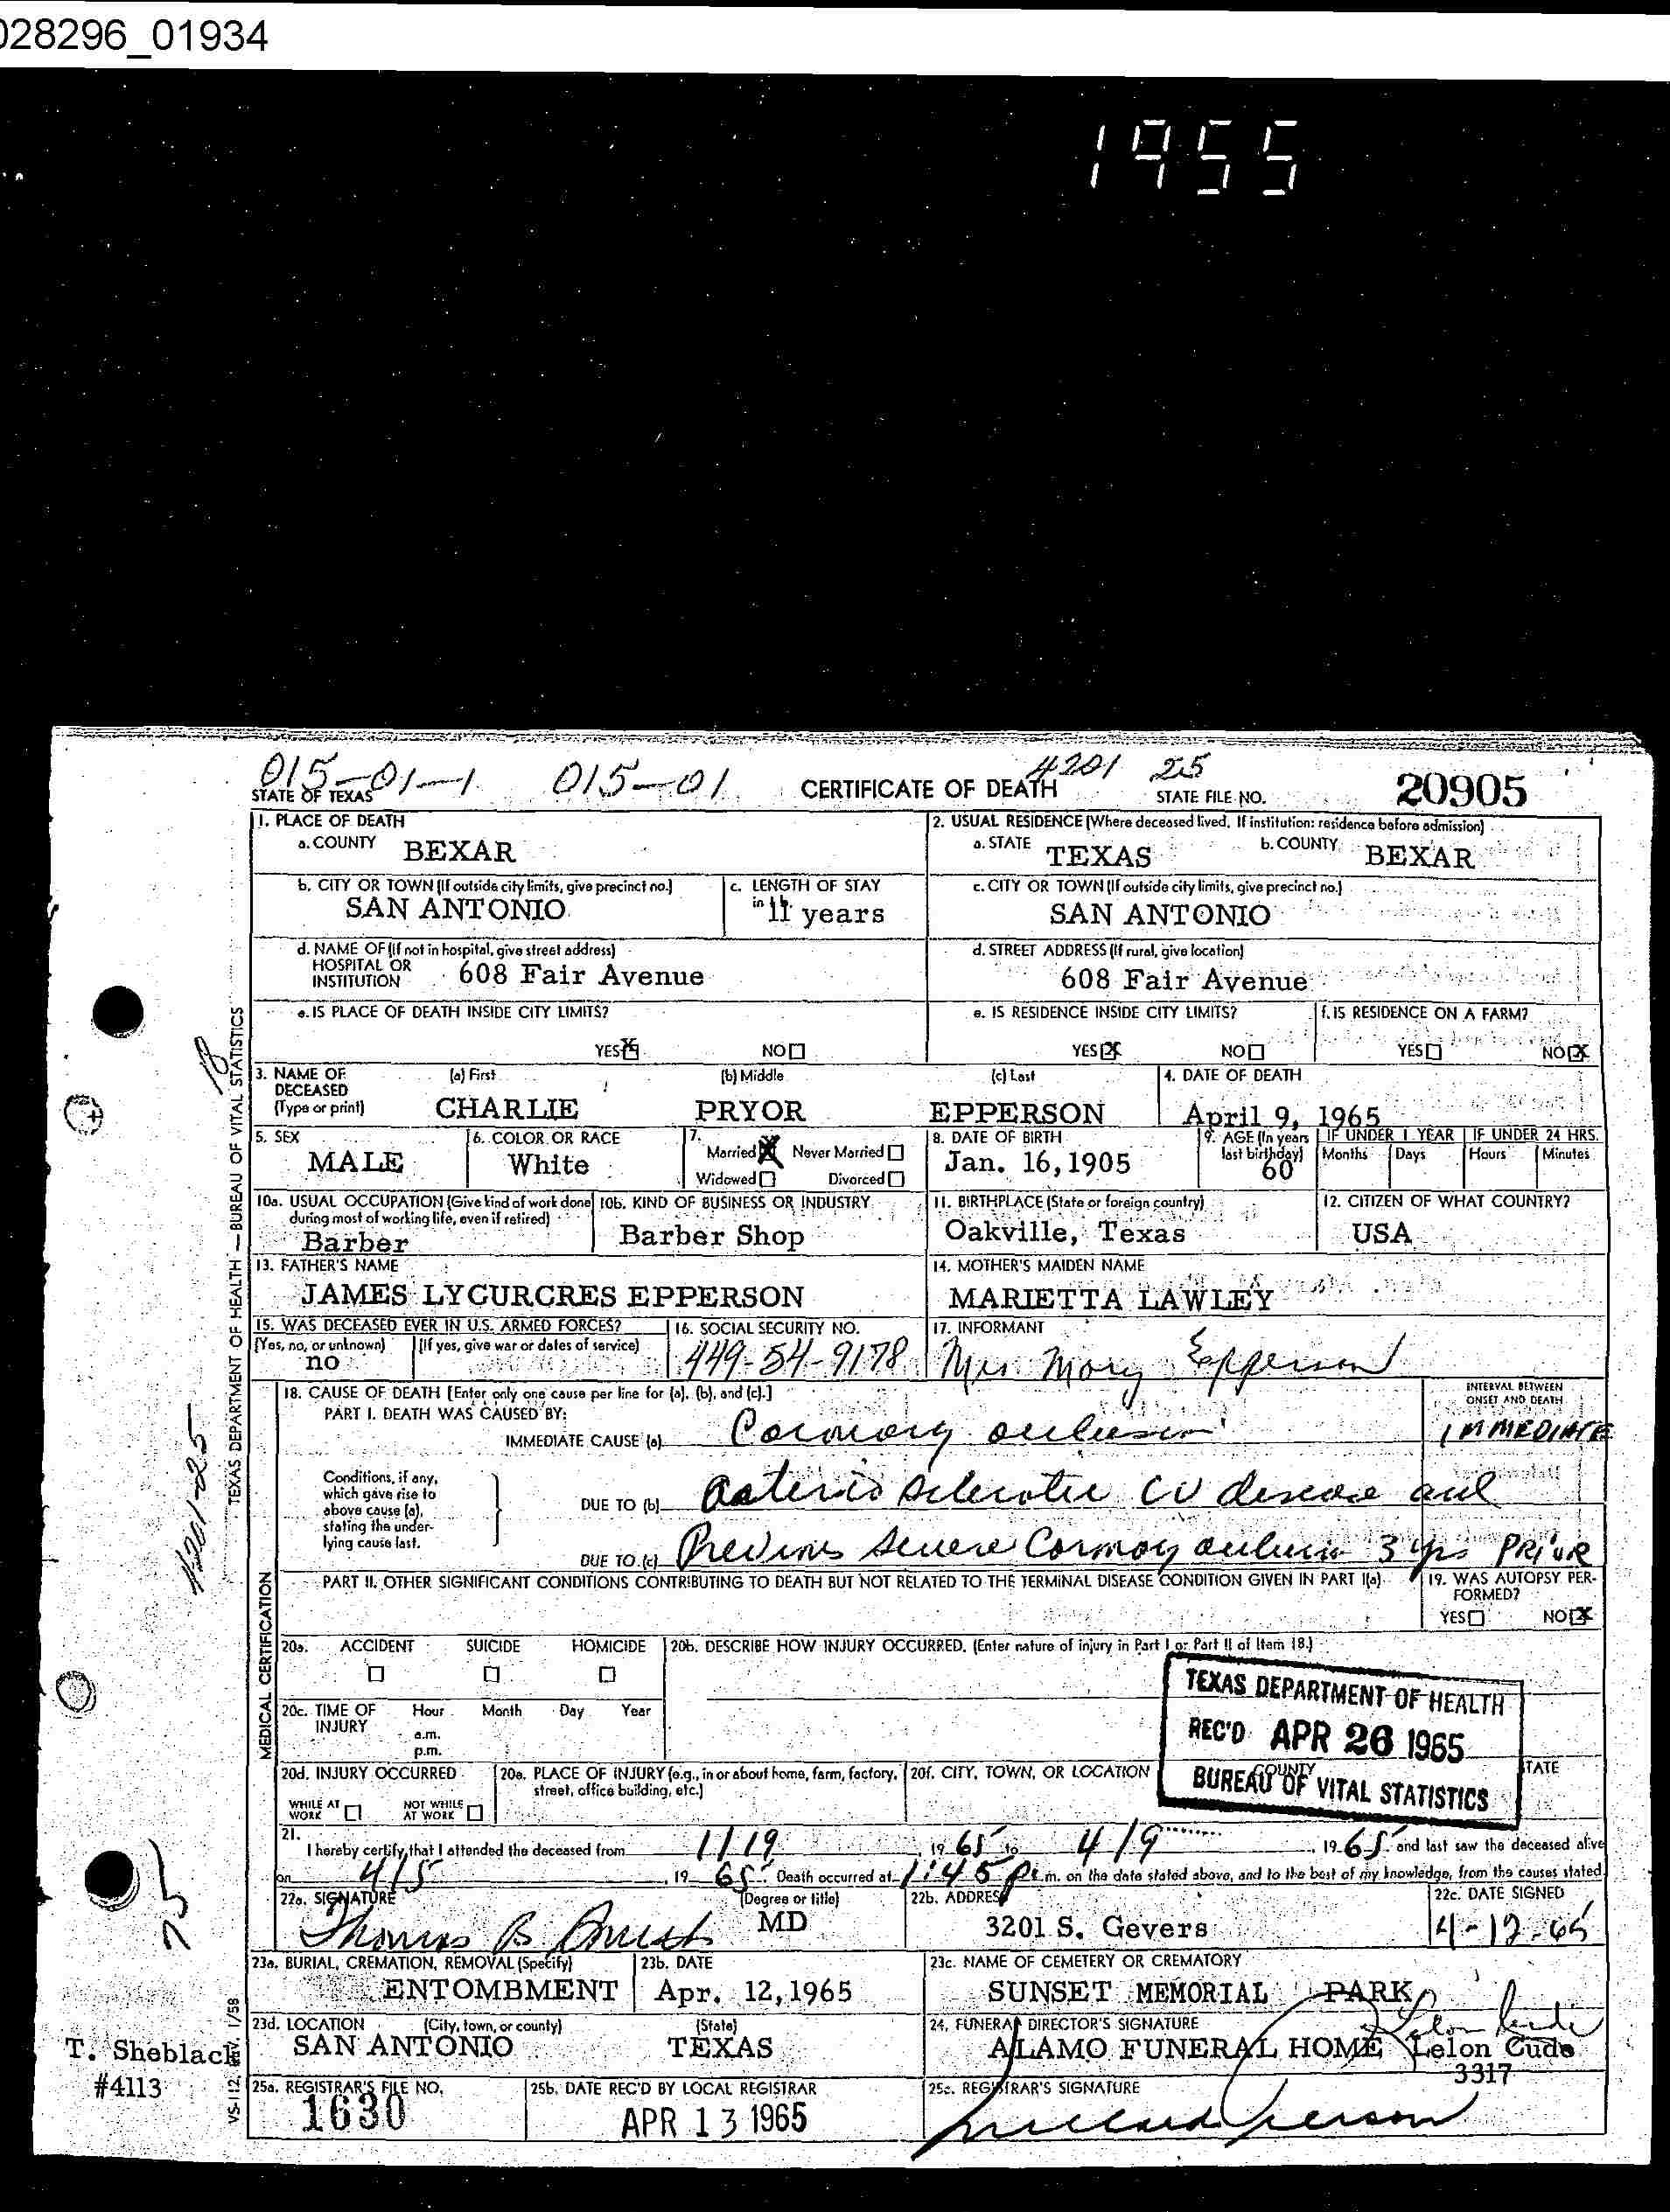 028296_01934
1955
015-01-1 015-01 4201 25
STATE OF TEXAS CERTIFICATE OF DEATH STATE FILE NO. 20905
1. PLACE OF DEATH
a. COUNTY BEXAR
2. USUAL RESIDENCE (Where deceased lived. If institution: residence before admission)
a. STATE TEXAS b. COUNTY BEXAR
b. CITY OR TOWN (If outside city limits, give precinct no.) SAN ANTONIO
c. LENGTH OF STAY in 1b. 11 years
c. CITY OR TOWN (If outside city limits, give precinct no.) SAN ANTONIO
d. NAME OF (If not in hospital, give street address) HOSPITAL OR INSTITUTION 608 Fair Avenue
d. STREET ADDRESS (If rural, give location) 608 Fair Avenue
e. IS PLACE OF DEATH INSIDE CITY LIMITS? YES X NO
e. IS RESIDENCE INSIDE CITY LIMITS? YES X NO
f. IS RESIDENCE ON A FARM? YES NO X
3. NAME OF DECEASED (Type or print) (a) First CHARLIE (b) Middle PRYOR (c) Last EPPERSON
4. DATE OF DEATH April 9, 1965
5. SEX MALE
6. COLOR OR RACE White
7. Married X Never Married Widowed Divorced
8. DATE OF BIRTH Jan. 16, 1905
9. AGE (In years last birthday) 60 IF UNDER 1 YEAR Months Days IF UNDER 24 HRS. Hours Minutes
10a. USUAL OCCUPATION (Give kind of work done during most of working life, even if retired) Barber
10b. KIND OF BUSINESS OR INDUSTRY Barber Shop
11. BIRTHPLACE (State or foreign country) Oakville, Texas
12. CITIZEN OF WHAT COUNTRY? USA
13. FATHER'S NAME JAMES LYCURCRES EPPERSON
14. MOTHER'S MAIDEN NAME MARIETTA LAWLEY
15. WAS DECEASED EVER IN U.S. ARMED FORCES? (Yes, no, or unknown) no (If yes, give war or dates of service)
16. SOCIAL SECURITY NO. 449-54-9178
17. INFORMANT Mrs. Mary Epperson
18. CAUSE OF DEATH [Enter only one cause per line for (a), (b), and (c).]
INTERVAL BETWEEN ONSET AND DEATH
PART I. DEATH WAS CAUSED BY:
IMMEDIATE CAUSE (a) Coronary occlusion IMMEDIATE
Conditions, if any, which gave rise to above cause (a), stating the underlying cause last.
DUE TO (b) Arterio sclerotic CV disease and
DUE TO (c) Previous severe Coronary occlusion 3 yrs PRIOR
PART II. OTHER SIGNIFICANT CONDITIONS CONTRIBUTING TO DEATH BUT NOT RELATED TO THE TERMINAL DISEASE CONDITION GIVEN IN PART I(a)
19. WAS AUTOPSY PERFORMED? YES NO X
20a. ACCIDENT SUICIDE HOMICIDE
20b. DESCRIBE HOW INJURY OCCURRED. (Enter nature of injury in Part I or Part II of Item 18.)
20c. TIME OF INJURY Hour Month Day Year a.m. p.m.
TEXAS DEPARTMENT OF HEALTH
REC'D APR 26 1965
BUREAU OF VITAL STATISTICS
20d. INJURY OCCURRED WHILE AT WORK NOT WHILE AT WORK
20e. PLACE OF INJURY (e.g., in or about home, farm, factory, street, office building, etc.)
20f. CITY, TOWN, OR LOCATION COUNTY STATE
21. I hereby certify that I attended the deceased from 1/19 1965 to 4/9 1965 and last saw the deceased alive
on 4/5 1965. Death occurred at 1:45 p.m. on the date stated above, and to the best of my knowledge, from the causes stated.
22a. SIGNATURE Thomas B (Degree or title) MD
22b. ADDRESS 3201 S. Gevers
22c. DATE SIGNED 4-12-65
23a. BURIAL, CREMATION, REMOVAL (Specify) ENTOMBMENT
23b. DATE Apr. 12, 1965
23c. NAME OF CEMETERY OR CREMATORY SUNSET MEMORIAL PARK
23d. LOCATION (City, town, or county) (State) SAN ANTONIO TEXAS
24. FUNERAL DIRECTOR'S SIGNATURE ALAMO FUNERAL HOME Lelon Cude
Lelon Cude 3317
25a. REGISTRAR'S FILE NO. 1630
25b. DATE REC'D BY LOCAL REGISTRAR APR 13 1965
25c. REGISTRAR'S SIGNATURE
TEXAS DEPARTMENT OF HEALTH — BUREAU OF VITAL STATISTICS
MEDICAL CERTIFICATION
VS-112 REV. 1/58
4201-25
T. Sheblack
#4113